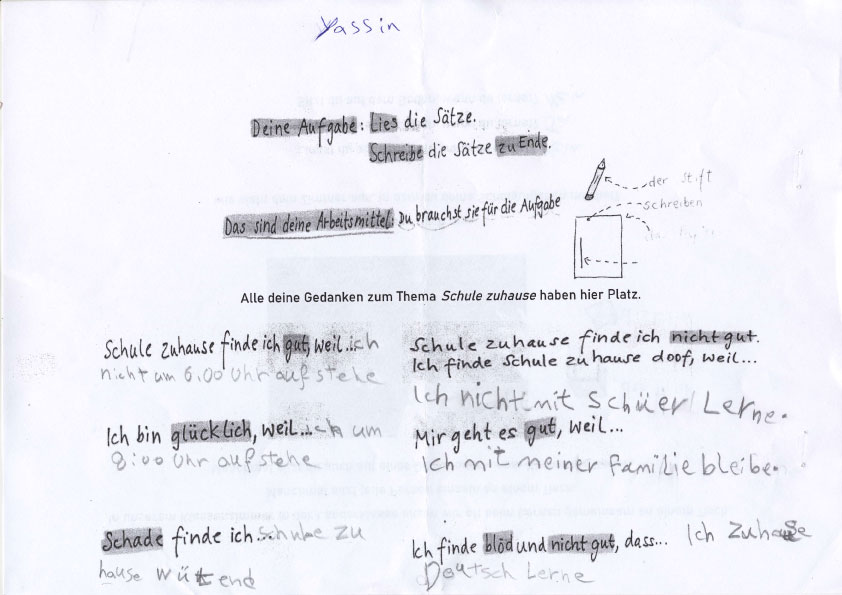 Yassin
Deine Aufgabe: Lies die Sätze.
Schreibe die Sätze zu Ende.
Das sind deine Arbeitsmittel: Du brauchst sie für die Aufgabe
der Stift
schreiben
Alle deine Gedanken zum Thema Schule zuhause haben hier Platz.
Schule zuhause finde ich gut, weil... ich
nicht um 6.00 Uhr aufstehe
Ich bin glücklich, weil... ich um
8:00 Uhr aufstehe
Schade finde ich... Schule zu
hause wütend
Schule zuhause finde ich nicht gut.
Ich finde Schule zuhause doof, weil...
Ich nicht mit Schüer Lerne.
Mir geht es gut, weil...
Ich mit meiner Familie bleibe.
Ich finde blöd und nicht gut, dass... Ich Zuhause
Deutsch Lerne